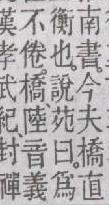 南書。今夫橋直
衡也。說苑曰。爲
不倦。橋、陸音義
漢孝武紀、封禪